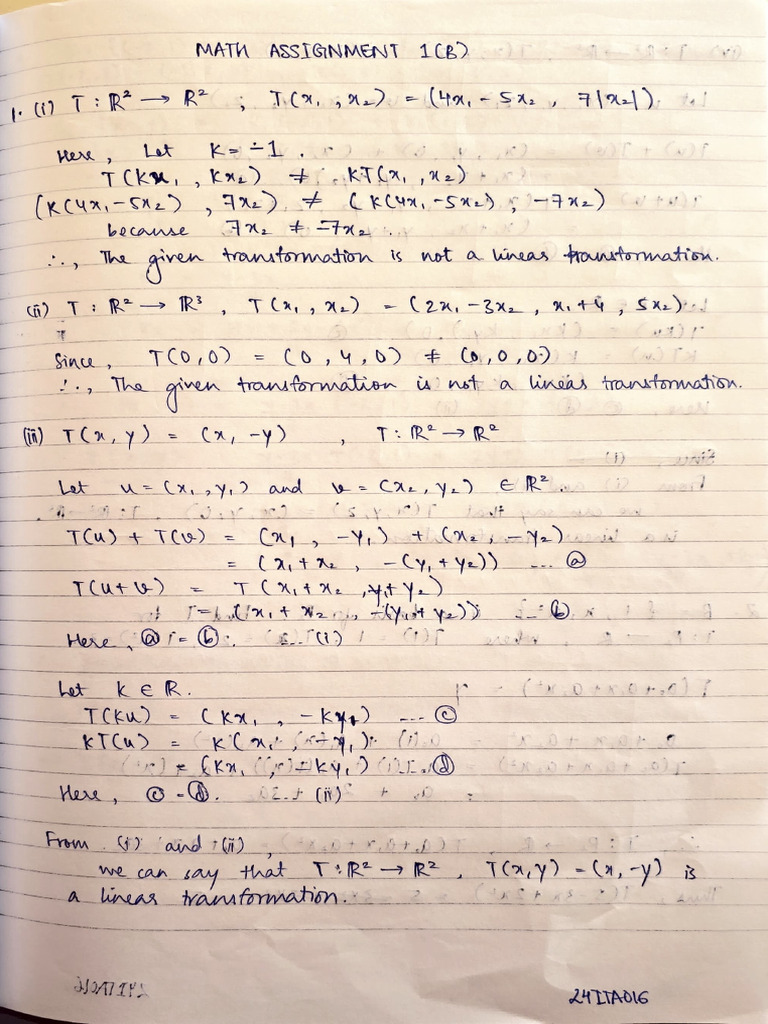 MATH ASSIGNMENT 1(B)
1. (i) T : ℝ² → ℝ² ; T(x₁, x₂) = (4x₁ - 5x₂, 7|x₂|).
Here, Let K = -1.
T(Kx₁, Kx₂) ≠ KT(x₁, x₂)
(K(4x₁-5x₂), 7x₂) ≠ (K(4x₁-5x₂), -7x₂)
because 7x₂ ≠ -7x₂.
∴, The given transformation is not a linear transformation.
(ii) T : ℝ² → ℝ³, T(x₁, x₂) = (2x₁-3x₂, x₁+4, 5x₂)
Since, T(0,0) = (0, 4, 0) ≠ (0,0,0)
∴, The given transformation is not a linear transformation.
(iii) T(x, y) = (x, -y), T : ℝ² → ℝ²
Let u = (x₁, y₁) and v = (x₂, y₂) ∈ ℝ².
T(u) + T(v) = (x₁, -y₁) + (x₂, -y₂)
= (x₁+x₂, -(y₁+y₂)) ... ⓐ
T(u+v) = T(x₁+x₂, y₁+y₂)
= (x₁+x₂, -(y₁+y₂)) ... ⓑ
Here, ⓐ = ⓑ. ... (i)
Let k ∈ ℝ.
T(ku) = (kx₁, -ky₁) ... ⓒ
kT(u) = k(x₁, -y₁)
= (kx₁, -ky₁) ... ⓓ
Here, ⓒ = ⓓ. ... (ii)
From (i) and (ii),
we can say that T : ℝ² → ℝ², T(x,y) = (x,-y) is
a linear transformation.
24ITA016